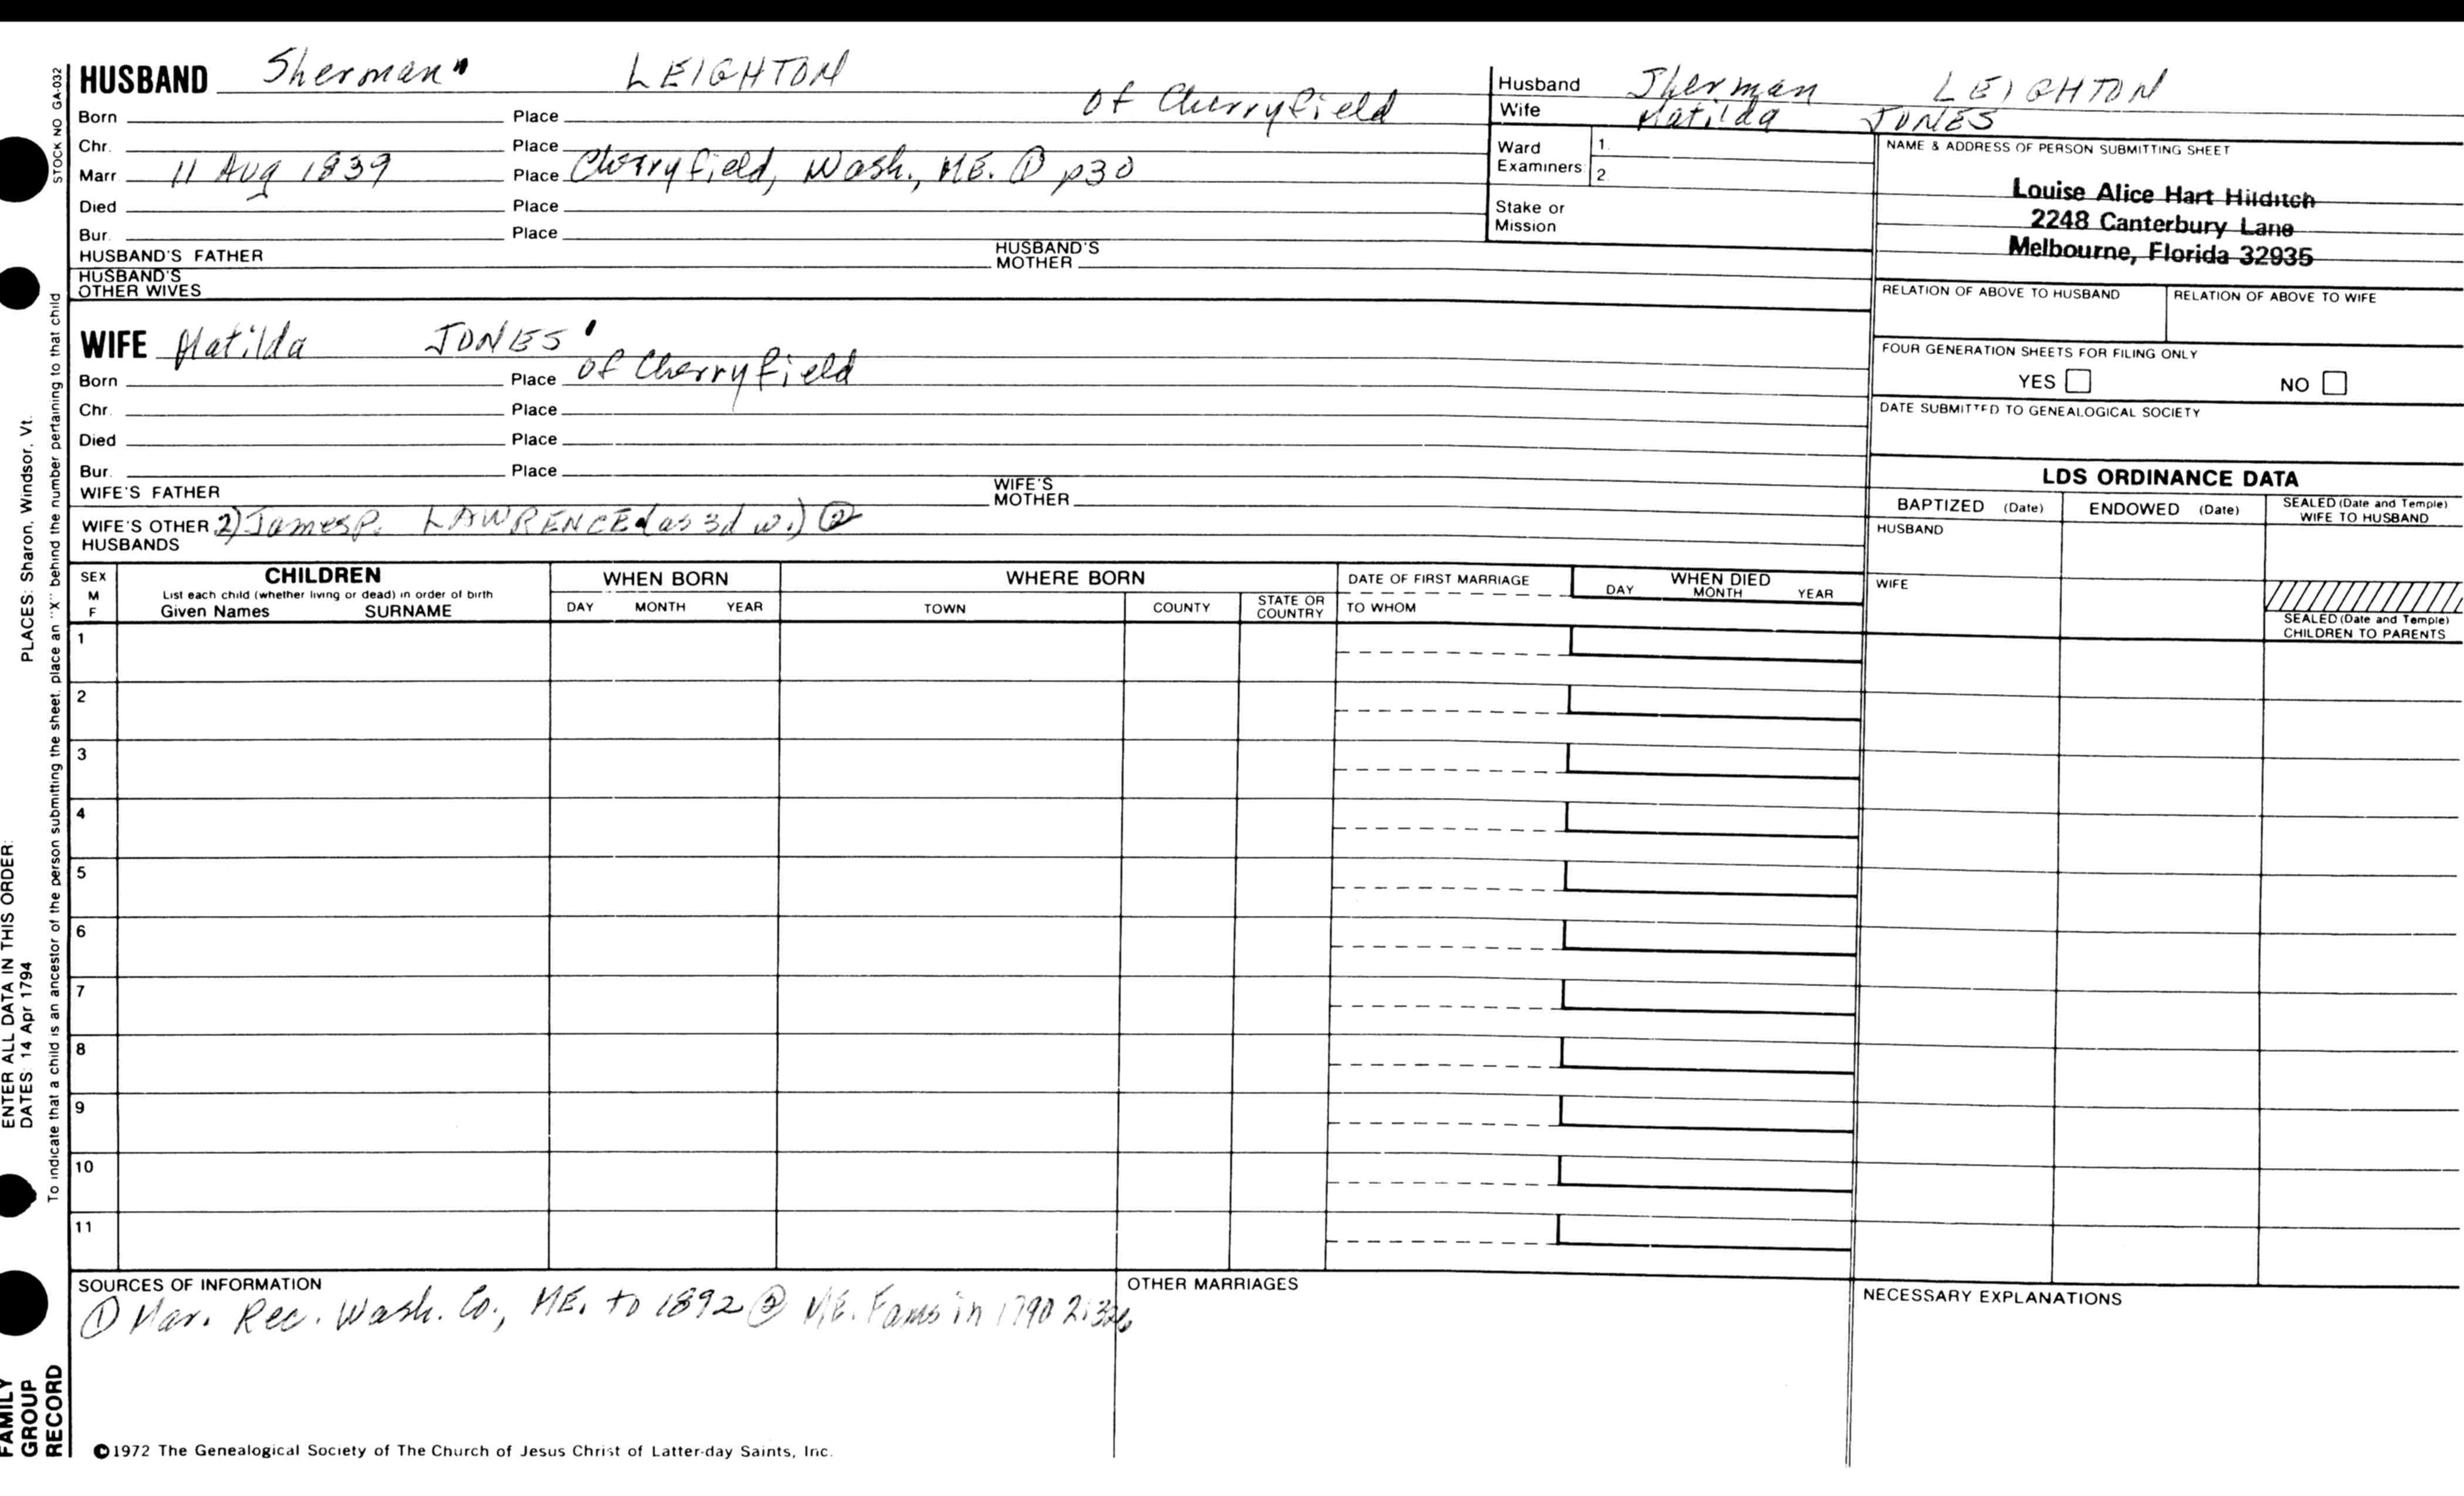 HUSBAND Sherman LEIGHTON
Born Place of Cherryfield
Chr. Place
Marr 11 Aug 1839 Place Cherryfield, Wash., ME. ① p30
Died Place
Bur. Place
HUSBAND'S FATHER HUSBAND'S MOTHER
HUSBAND'S OTHER WIVES
Husband Sherman LEIGHTON
Wife Matilda JONES
Ward Examiners 1. 2.
Stake or Mission
NAME & ADDRESS OF PERSON SUBMITTING SHEET
Louise Alice Hart Hilditch
2248 Canterbury Lane
Melbourne, Florida 32935
RELATION OF ABOVE TO HUSBAND RELATION OF ABOVE TO WIFE
FOUR GENERATION SHEETS FOR FILING ONLY
YES NO
DATE SUBMITTED TO GENEALOGICAL SOCIETY
WIFE Matilda JONES
Born Place of Cherryfield
Chr. Place
Died Place
Bur. Place
WIFE'S FATHER WIFE'S MOTHER
WIFE'S OTHER HUSBANDS 2) James P. LAWRENCE (as 3d w.) ②
LDS ORDINANCE DATA
BAPTIZED (Date) ENDOWED (Date) SEALED (Date and Temple) WIFE TO HUSBAND
HUSBAND
WIFE
SEALED (Date and Temple) CHILDREN TO PARENTS
SEX M F
CHILDREN
List each child (whether living or dead) in order of birth
Given Names SURNAME
WHEN BORN
DAY MONTH YEAR
WHERE BORN
TOWN COUNTY STATE OR COUNTRY
DATE OF FIRST MARRIAGE
TO WHOM
WHEN DIED
DAY MONTH YEAR
1
2
3
4
5
6
7
8
9
10
11
SOURCES OF INFORMATION
① Mar. Rec. Wash. Co., ME. to 1892 ② ME. Fams in 1790 2:326
OTHER MARRIAGES
NECESSARY EXPLANATIONS
©1972 The Genealogical Society of The Church of Jesus Christ of Latter-day Saints, Inc.
STOCK NO GA-032
To indicate that a child is an ancestor of the person submitting the sheet, place an "X" behind the number pertaining to that child
PLACES: Sharon, Windsor, Vt.
ENTER ALL DATA IN THIS ORDER:
DATES: 14 Apr 1794
FAMILY
GROUP
RECORD